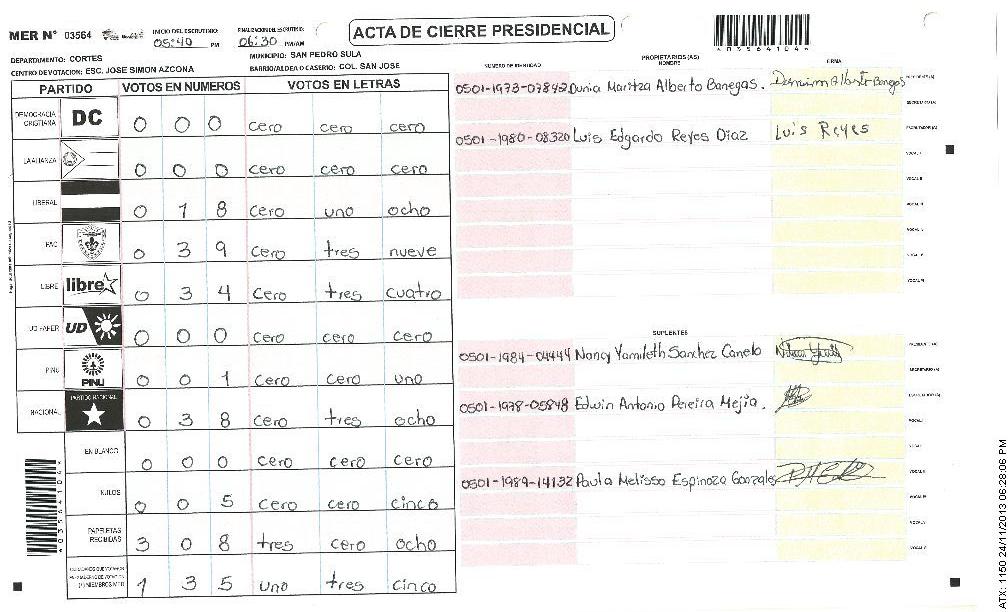 MER N° 03564
INICIO DEL ESCRUTINIO: 05:40 PM
FINALIZACION DEL ESCRUTINIO: 06:30 PM/AM
ACTA DE CIERRE PRESIDENCIAL
DEPARTAMENTO: CORTES
MUNICIPIO: SAN PEDRO SULA
CENTRO DE VOTACION: ESC. JOSE SIMON AZCONA
BARRIO/ALDEA O CASERIO: COL. SAN JOSE
PARTIDO VOTOS EN NUMEROS VOTOS EN LETRAS
DEMOCRACIA CRISTIANA DC 0 0 0 cero cero cero
LA ALIANZA 0 0 0 cero cero cero
LIBERAL 0 1 8 cero uno ocho
PAC 0 3 9 cero tres nueve
LIBRE libre 0 3 4 cero tres cuatro
UD FAPER UD 0 0 0 cero cero cero
PINU PINU 0 0 1 cero cero uno
NACIONAL PARTIDO NACIONAL 0 3 8 cero tres ocho
EN BLANCO 0 0 0 cero cero cero
NULOS 0 0 5 cero cero cinco
PAPELETAS RECIBIDAS 3 0 8 tres cero ocho
1 3 5 uno tres cinco
PROPIETARIOS (AS)
NÚMERO DE IDENTIDAD NOMBRE FIRMA
0501-1973-07842 Dunia Maritza Alberto Banegas.
0501-1980-08320 Luis Edgardo Reyes Diaz Luis Reyes
SUPLENTES
0501-1984-04444 Nancy Yamileth Sanchez Canelo
0501-1978-05848 Edwin Antonio Pereira Mejia.
0501-1989-14132 Paula Melissa Espinoza Gonzales
ATX: 1150 24/11/2013 06:28:06 PM